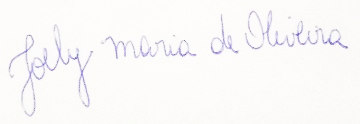 Joely maria de Oliveira